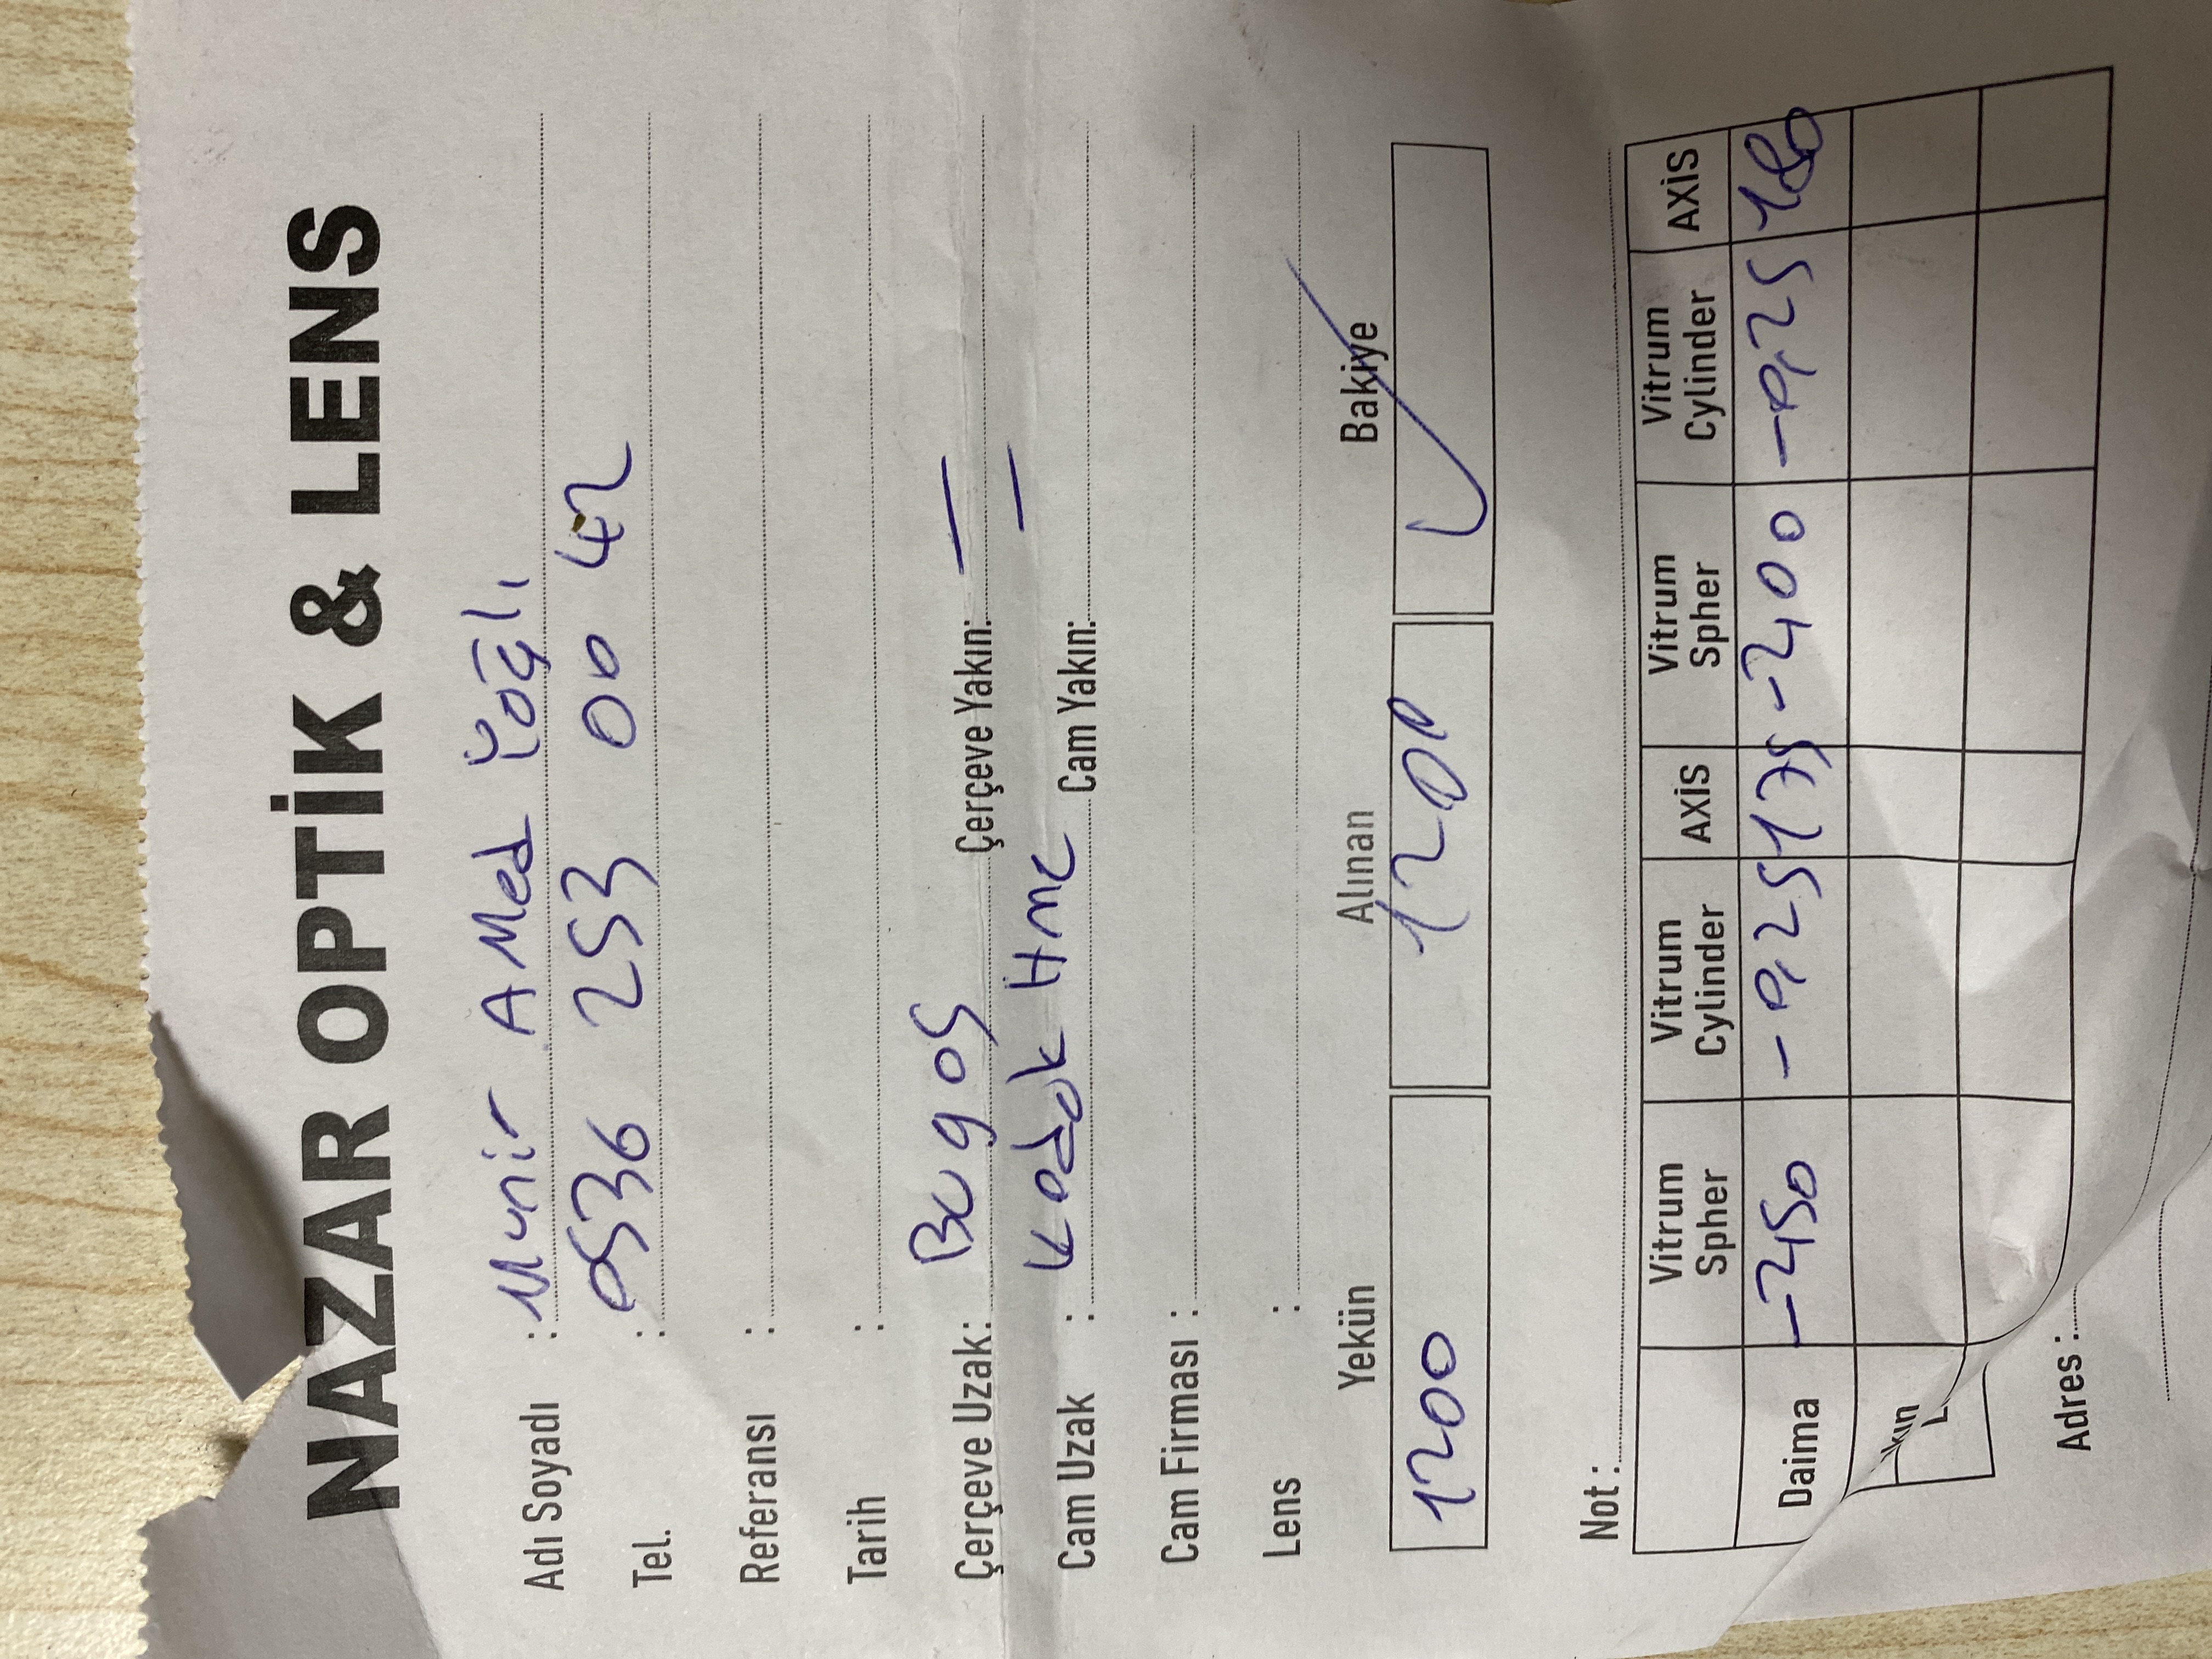 NAZAR OPTİK & LENS
Adı Soyadı : Munir AMed
Tel. : 0536 253 00 42
Referansı :
Tarih :
Çerçeve Uzak: Bugos Çerçeve Yakın: —
Cam Uzak : Kodak Hmc Cam Yakın: —
Cam Firması :
Lens :
Yekün Alınan Bakiye
1200 1200 ✓
Not :
Vitrum Spher Vitrum Cylinder AXİS Vitrum Spher Vitrum Cylinder AXİS
Daima -2,50 -0,25 175 -2,00 -0,25 180
Adres :